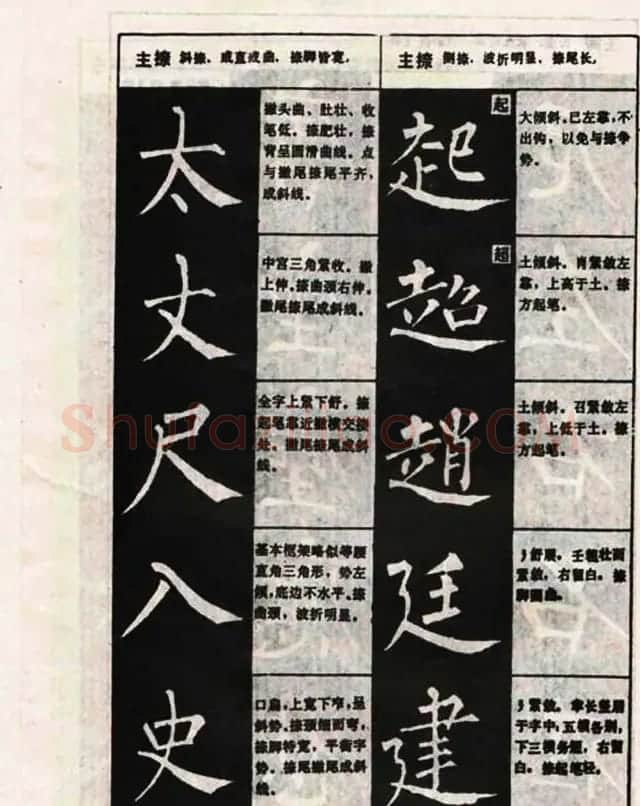 主捺 斜捺、或直或曲、捺脚皆宽。
太
撇头曲、肚壮、收
笔低。捺肥壮，捺
背呈圆滑曲线。点
与撇尾捺尾平齐，
成斜线。
丈
中宫三角紧收。撇
上伸。捺曲颈右伸。
撇尾捺尾成斜线。
尺
全字上紧下舒。捺
起笔靠近撇横交接
处。撇尾捺尾成斜
线。
入
基本框架略似等腰
直角三角形，势左
倾，底边不水平。捺
曲颈，波折明显。
史
口扁。上宽下窄，呈
斜势。捺颈细而弯，
捺脚特宽，平衡字
势。捺尾撇尾成斜
线。
主捺 侧捺、波折明显、捺尾长。
起
起
大倾斜。巳左靠，不
出钩，以免与捺争
势。
超
超
土倾斜。肖紧敛左
靠，上高于土。捺
方起笔。
趙
土倾斜。召紧敛左
靠，上低于土。捺
方起笔。
廷
舒展，壬粗壮而
紧敛，右留白。捺
脚圆曲。
建
紧敛。聿长竖居
于字中，五横各别，
下三横务短，右留
白。捺起笔轻。
Shufa